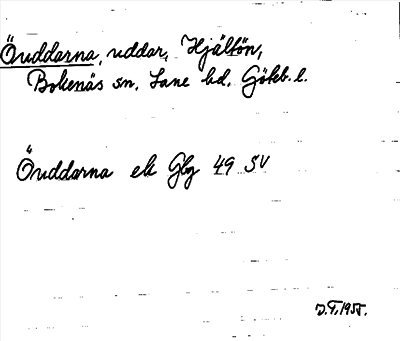 Öuddarna, uddar, Hjältön,
Bokenäs sn. Lane hd. Göteb. l.
Öuddarna ek Gbg 49 SV
J.F. 1955.